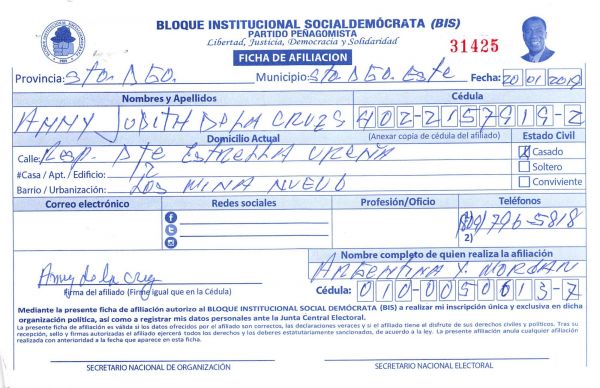 BLOQUE INSTITUCIONAL SOCIALDEMÓCRATA (BIS)
PARTIDO PEÑAGOMISTA
Libertad, Justicia, Democracia y Solidaridad
FICHA DE AFILIACION
31425
Provincia: Sto. Dgo. Municipio: Sto Dgo. Este Fecha: 20 01 2019
Nombres y Apellidos Cédula
ANNY JUDITH DE LA CRUZ 402-2157919-2
Domicilio Actual (Anexar copia de cédula del afiliado) Estado Civil
Calle: Resp. Dte Estrella Ureña Casado
#Casa / Apt. / Edificio: 12 Soltero
Barrio / Urbanización: Los MINA NUEVO Conviviente
Correo electrónico Redes sociales Profesión/Oficio Teléfonos
1) 796-5818
2)
Nombre completo de quien realiza la afiliación
Anny de la cruz ARGENTINA Y. MORDAN
Firma del afiliado (Firme igual que en la Cédula) Cédula: 010-0050613-7
Mediante la presente ficha de afiliación autorizo al BLOQUE INSTITUCIONAL SOCIAL DEMÓCRATA (BIS) a realizar mi inscripción única y exclusiva en dicha
organización política, así como a registrar mis datos personales ante la Junta Central Electoral.
La presente ficha de afiliación es válida si los datos ofrecidos por el afiliado son correctos, las declaraciones veraces y si el afiliado tiene el disfrute de sus derechos civiles y políticos. Tras su
recepción, sello y firmas autorizadas el afiliado ejercerá todos los derechos y los deberes estatutariamente sancionados, de acuerdo a la ley. La presente afiliación anula cualquier afiliación
realizada con anterioridad a la fecha que aparece en esta ficha.
SECRETARIO NACIONAL DE ORGANIZACIÓN SECRETARIO NACIONAL ELECTORAL